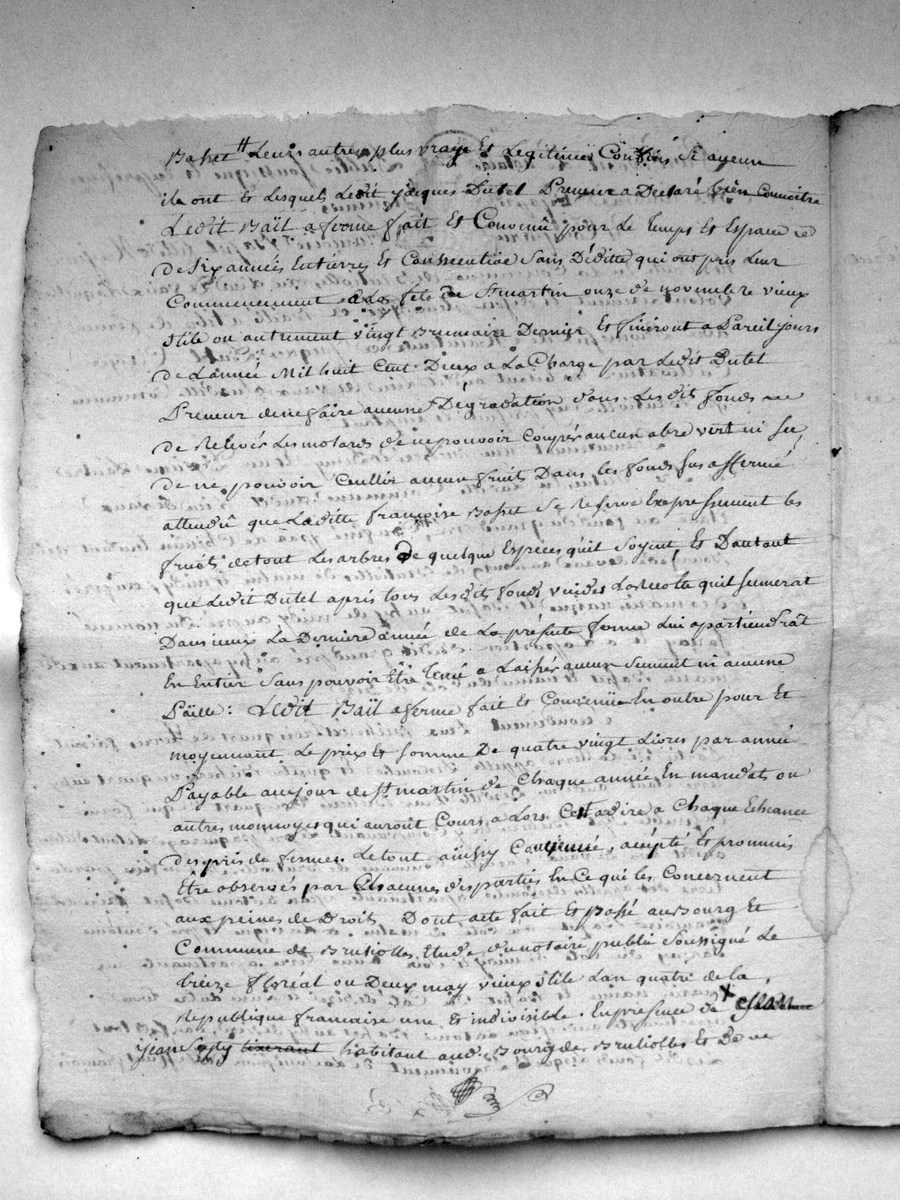 Basset leurs autres plus vraye et Legitimes Confins Si aucun
ils ont et lesquels Ledit jacques Dutel Preneur a Declaré bien Connoitre
Ledit Bail a ferme fait et Convenû pour le temps et Espace
de Six années Entierres et Conssecutive Sans Déditte qui ont pris leur
Commencement a La fete de St martin onze de novembre vieux
stile ou autrement vingt Brumaire Dernier et finiront a Pareil jours
de L'année Mil huit Cent Deux a La Charge par Ledit Dutel
Preneur de ne faire aucune Dégradation dans Les dit fonds
de Relever Les motares de ne pouvoir Coupér aucun abre vert ni sec
de ne pouvoir Ceullir aucun fruit Dans les fonds sus affermé
attendû que Laditte françoise Basset Se Reserve Expressement les
fruits de tout Les arbres de quelque Especes qu'il Soyent et D'autant
que Ledit Dutel apris tous Les dit fonds vuides La Recolte quil Semerat
Dans iceux La Derniere année de La présente ferme Lui apartiendrat
En Entier Sans pouvoir Être tenû a Laissér aucun Semment ni aucune
Païlle : Ledit Bail a ferme fait et Convenûe En outre pour Et
moyennant Le prix et Somme De quatre vingt Livres par année
Payable au jour de St martin de Chaque année En mandats ou
autres monnoyes qui auront Cours a Lors Cest adire a Chaque Echeance
des pris de fermes Le tout ainssy Convenûe, acépté et prommis
Être observés par Chacunes des partiés En Ce qui les Concernent
aux peines de Droits Dont acte fait Et Passé au Bourg et
Commune de Brullioles Etude du notaire publi Soussigné Le
treize floréal ou Deux may vieux stile L'an quatre de la
Republique francaise une et indivisible. En presence de
jean habitant audi Bourg des Brullioles et De